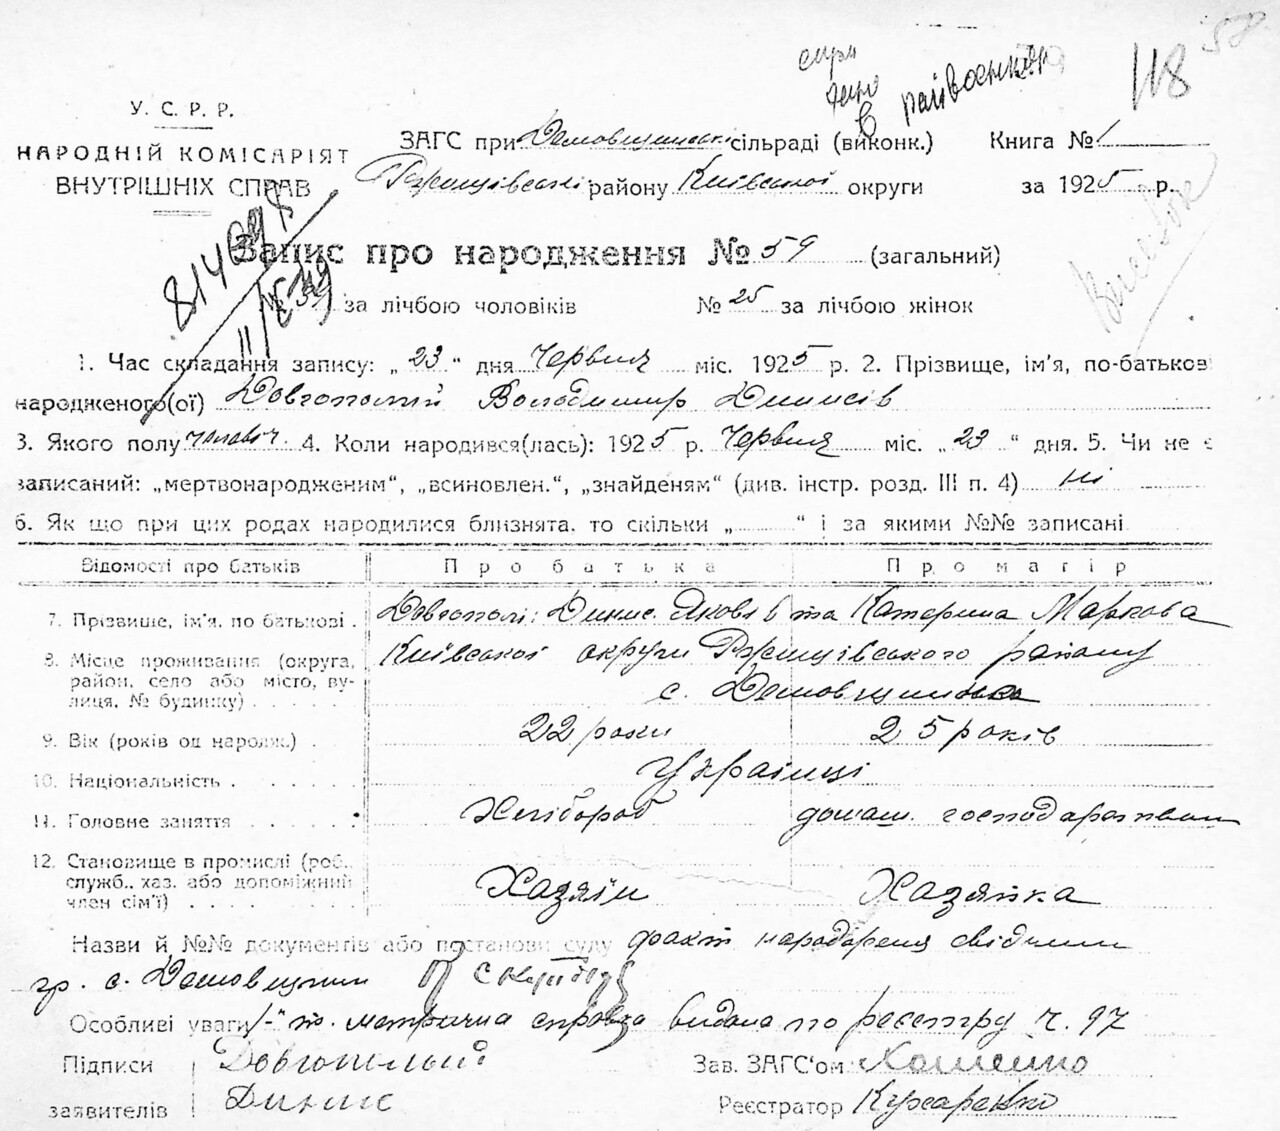 58
118
в райвоєнкомат
У. С. Р. Р.
НАРОДНІЙ КОМІСАРІЯТ
ВНУТРІШНІХ СПРАВ
ЗАГС при Демовщинські сільраді (виконк.) Книга № 1
Ржищівські району Київської округи за 1925 р.
Запис про народження № 59 (загальний)
№ 34 за лічбою чоловіків № 25 за лічбою жінок
1. Час складання запису: „23“ дня Червня міс. 1925 р. 2. Прізвище, ім'я, по-батькові
народженого(ої) Довгополий Володимир Динисів
3. Якого полу чоловіч. 4. Коли народився(лась): 1925 р. Червня міс. „23“ дня. 5. Чи не є
записаний: „мертвонародженим“, „всиновлен.“, „знайденям“ (див. інстр. розд. III п. 4) ні
6. Як що при цих родах народилися близнята. то скільки „ “ і за якими №№ записані
Відомості про батьків Про батька Про матір
7. Прізвище, ім'я, по батькові . Довгополі: Динис. Яковів та Катерина Маркова
8. Місце проживання (округа, район, село або місто, вулиця, № будинку) . . . . Київської округи Ржищівського району
с. Демовщина
9. Вік (років од народж.) . 22 роки 25 років
10. Національність . . . . . Українці
11. Головне заняття . . . . . . Хлібороб домаш. господарством
12. Становище в промислі (роб.,
служб., хаз. або допоміжний
член сім'ї) . . . . . . . . Хазяїн Хазяйка
Назви й №№ документів або постанови суду факт народження свідчили
гр. с. Демовщини
Особливі уваги метрична справка видана по реєстру ч. 97
Підписи Довгополый Зав. ЗАГС'ом
заявителів Динис Реєстратор Кухаренко